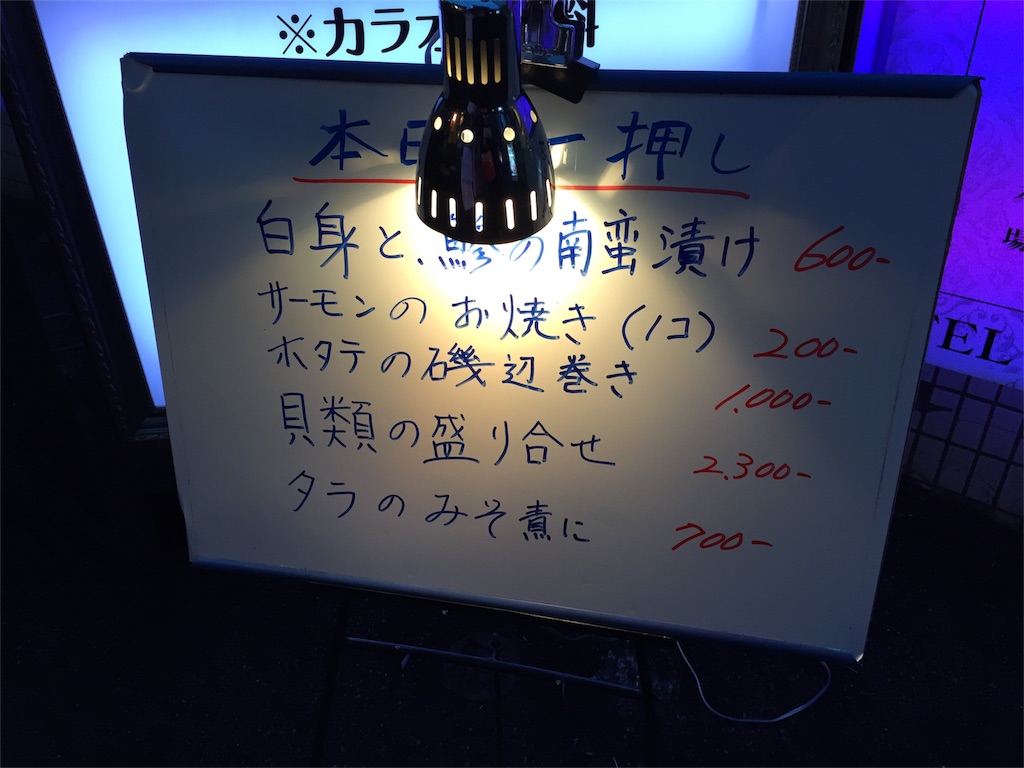 ※カラオ 料
本日 一押し
白身と、鯵の南蛮漬け 600-
サーモンのお焼き(1コ) 200-
ホタテの磯辺巻き 1.000-
貝類の盛り合せ 2.300-
タラのみそ煮に 700-
場
TEL